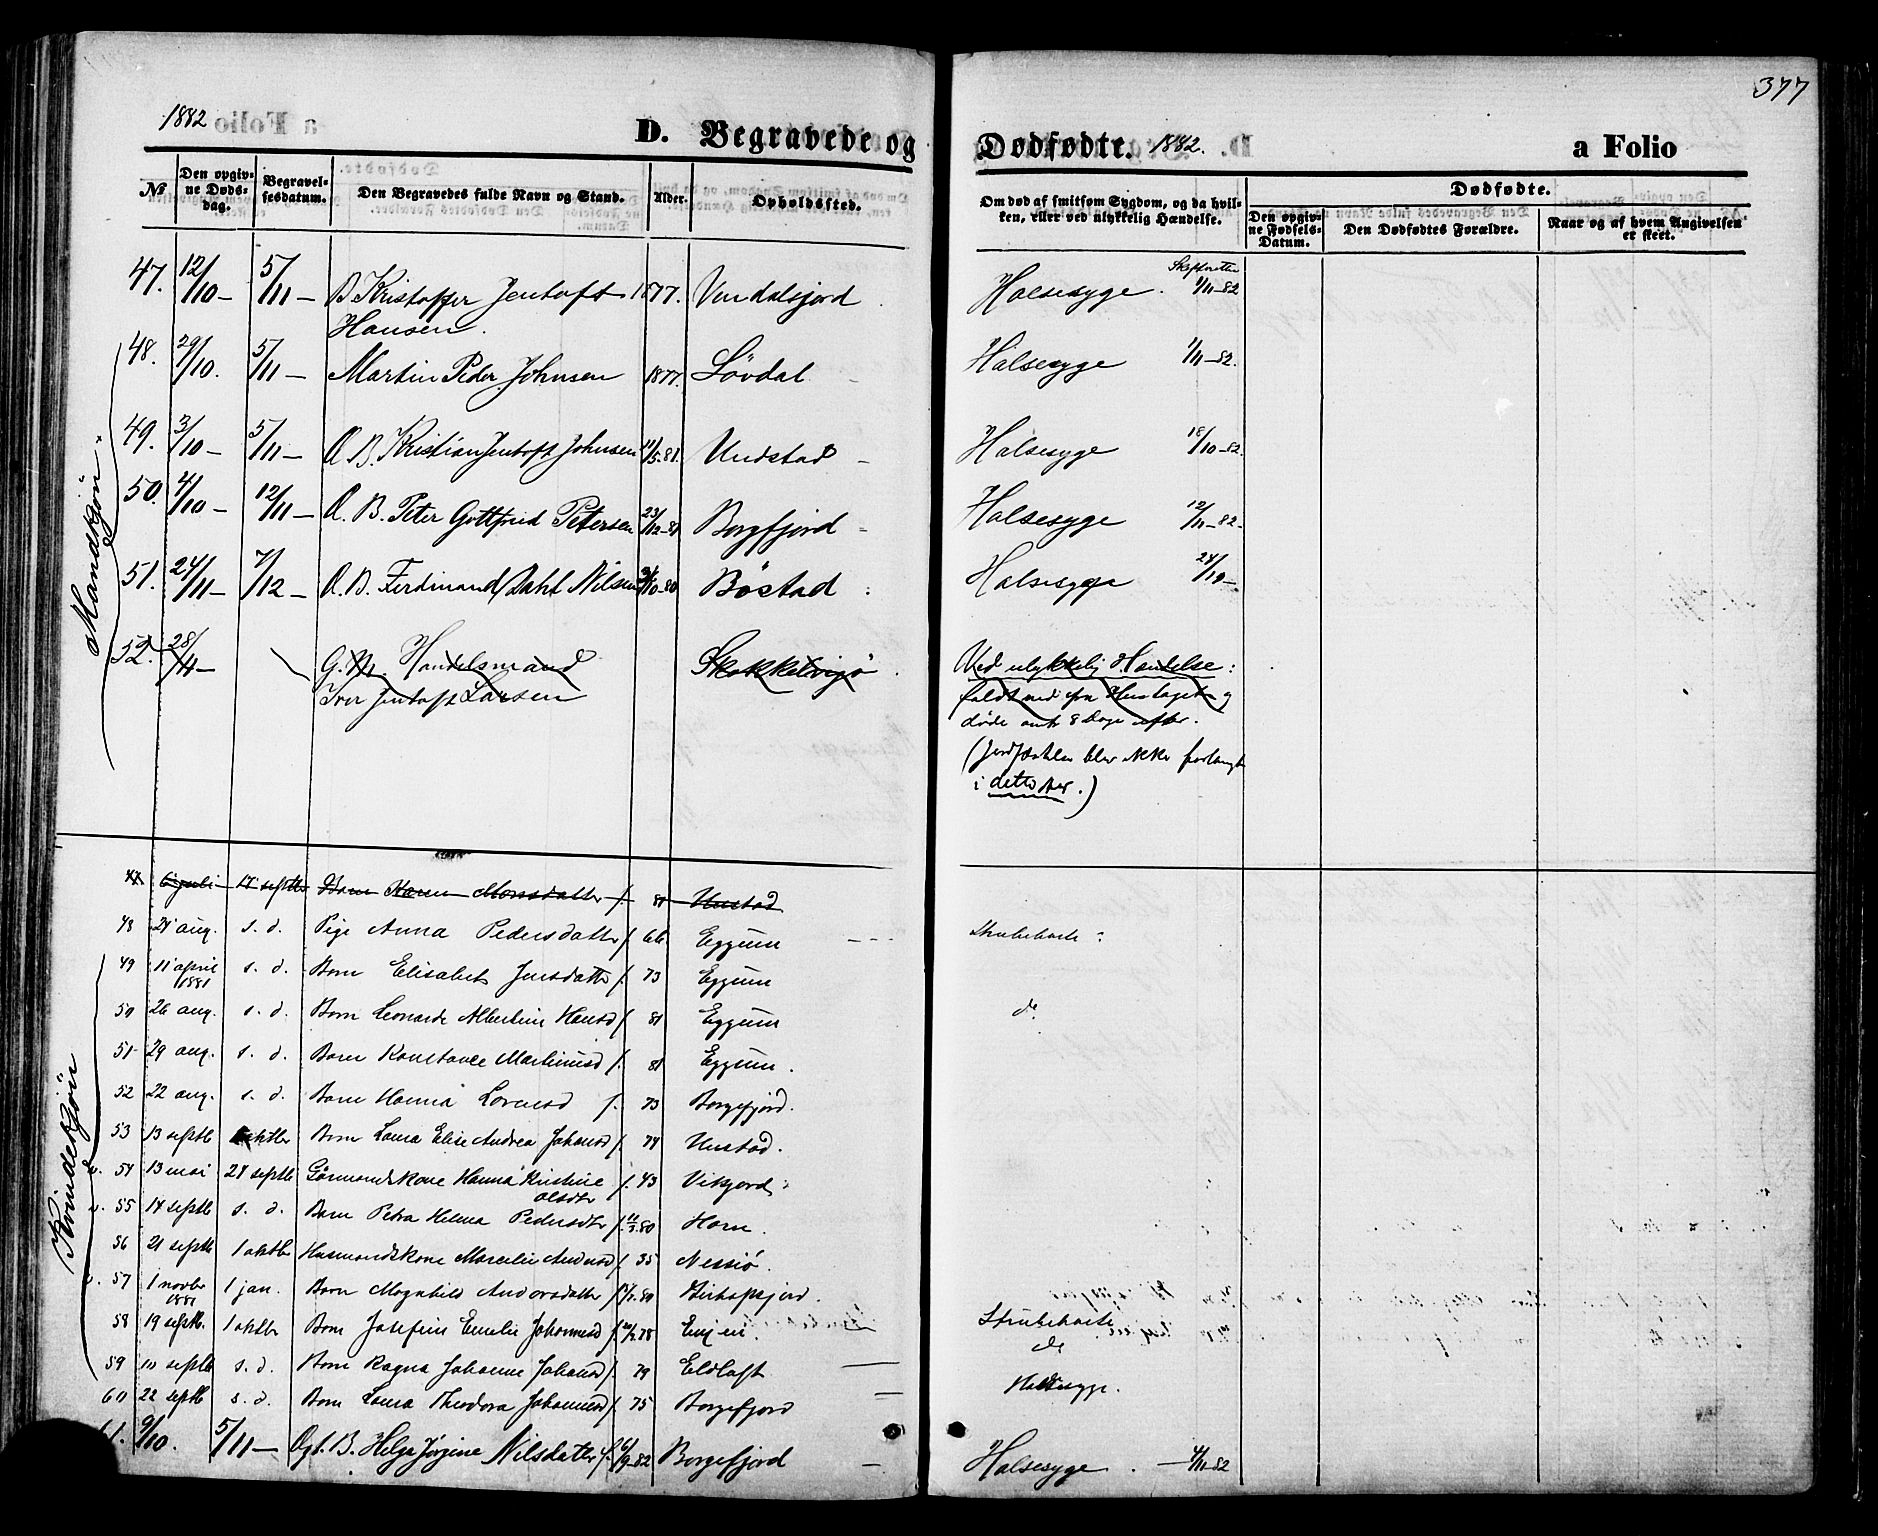 1882 D. Begravede og
Dødfødte. 1882. a Folio
377
№ Den opgivne Døds-dag. Begravelsesdatum. Den Begravedes fulde Navn og Stand. Alder. Opholdssted.
Om død af smitsom Sygdom, og da hvilken, eller ved ulykkelig Hændelse.
Dødfødte.
Den opgivne Fødsels-Datum. Den Dødfødtes Forældre. Naar og af hvem Angivelsen er skeet.
Mandkjøn.
47. 12/10 – 5/11 – B Kristoffer Jentoft 1877. Vendalsjord Halsesyge. Skifteretten 1/11-82
Hansen.
48. 29/10. 5/11 – Martin Peder Johnsen 1877. Løvdal Halsesyge 1/11-82.
49. 3/10 – 5/11 – Æ B. Kristian Jentoft Johnsen 11/5.81. Undstad – Halsesyge 18/10-82.
50. 4/10 – 12/11 – Æ. B. Peter Gottfried Petersen 23/12-81 Borgfjord – Halsesyge 12/11-82.
51. 24/11 – 7/12 – Æ. B. Ferdinand Dahl Nilsen /10-80 Bøstad Halsesyge 24/12 –
52. 28/4 – G. M. Handelsmand Skokkelvigø Ved ulykkelig Hændelse:
Iver Jentoft Larsen faldt ned fra Hustaget og
døde omtr 8 Dage efter.
(Jordfæstelse blev ikke forlangt
i dette Aar.)
Kvindekjøn
47 6 juli 17 septbr Barn Karen Monsdatter f. 81 Hustad
48 21 aug. s. d. Pige Anna Pedersdatter f. 66 Eggum Strubehoste
49 11 april 1881 s. d. Barn Elisabet Jensdatter f. 73 Eggum
50 26 aug. s. d. Barn Leonarde Albertine Hansd f. 81 Eggum do
51 29 aug. s. d. Barn Konstance Martinusd f. 81 Eggum.
52 22 aug. s. d. Barn Hanna Lorensd f. 73 Borgefjord.
53 13 septb oktbr Barn Laura Elise Andrea Johansd f. 74 Hustad.
54 13 mai 24 septb Gårmandskone Hanna Kristine f. 43 Vikjord
Olsdtr
55 14 septb s. d. Barn Petra Helma Pedersdtr f. 11/3.80 Horn.
56 21 septb 1 oktbr Husmandskone Marcelie Andersd f. 35 Nessjø.
57 1 novbr 1881 1 jan. Barn Magnhild Andorsdatter f. .80 Bishopsjord.
58 19 septb. 1 oktbr Barn Josefine Emelie Johannesd f. .78 Engen. Strubehoste
59 10 septb s. d. Barn Ragna Johanne Johansd f. 79 Eldloft do
60 22 septb s. d. Barn Laura Theodora Johannesd f. 75 Borgefjord Halssyge.
61. 9/10. 5/11 – Ægt. B. Helga Jørgine Nilsdatter f. 6/9-82 Borgefjord – Halsesyge. – 4/11-82